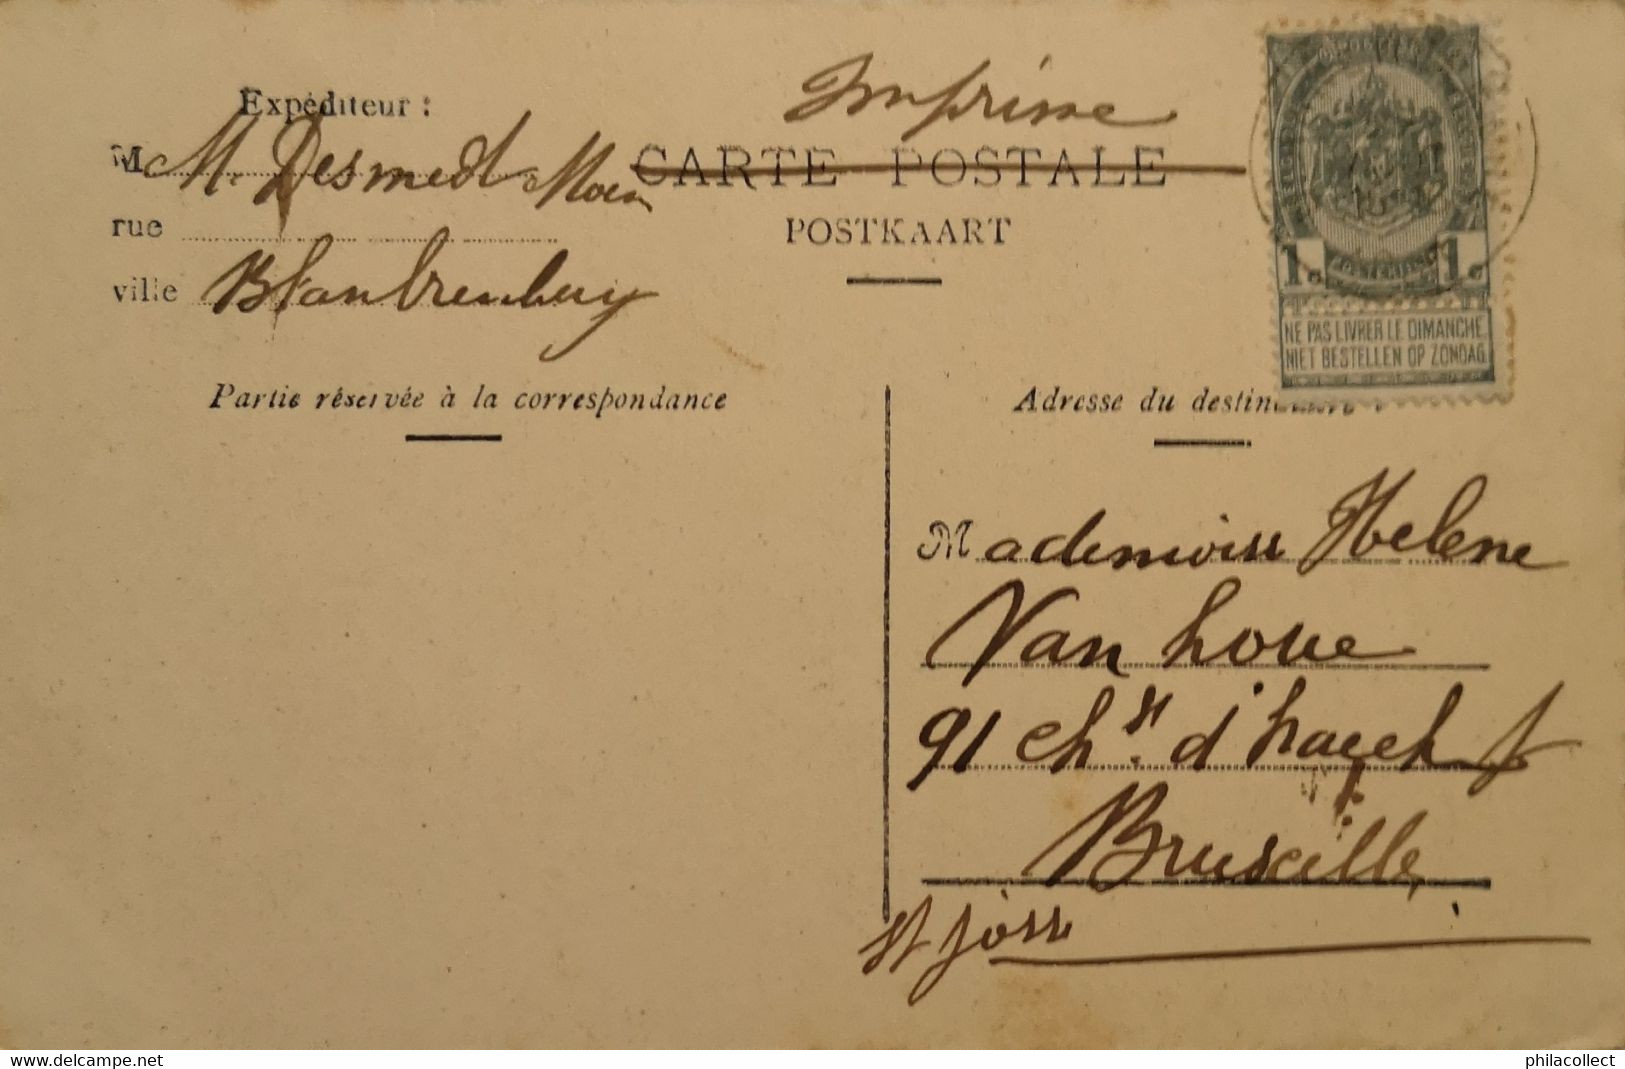 Imprime
Expéditeur :
M M. Desmedt Moen
CARTE POSTALE
rue
POSTKAART
ville Blankenberg
1c 1c
NE PAS LIVRER LE DIMANCHE
NIET BESTELLEN OP ZONDAG
Partie réservée à la correspondance
Adresse du destinataire :
Mademoiselle Helene
Van hove
91 Chée d'haecht
Bruxelles
St Josse
www.delcampe.net
philacollect